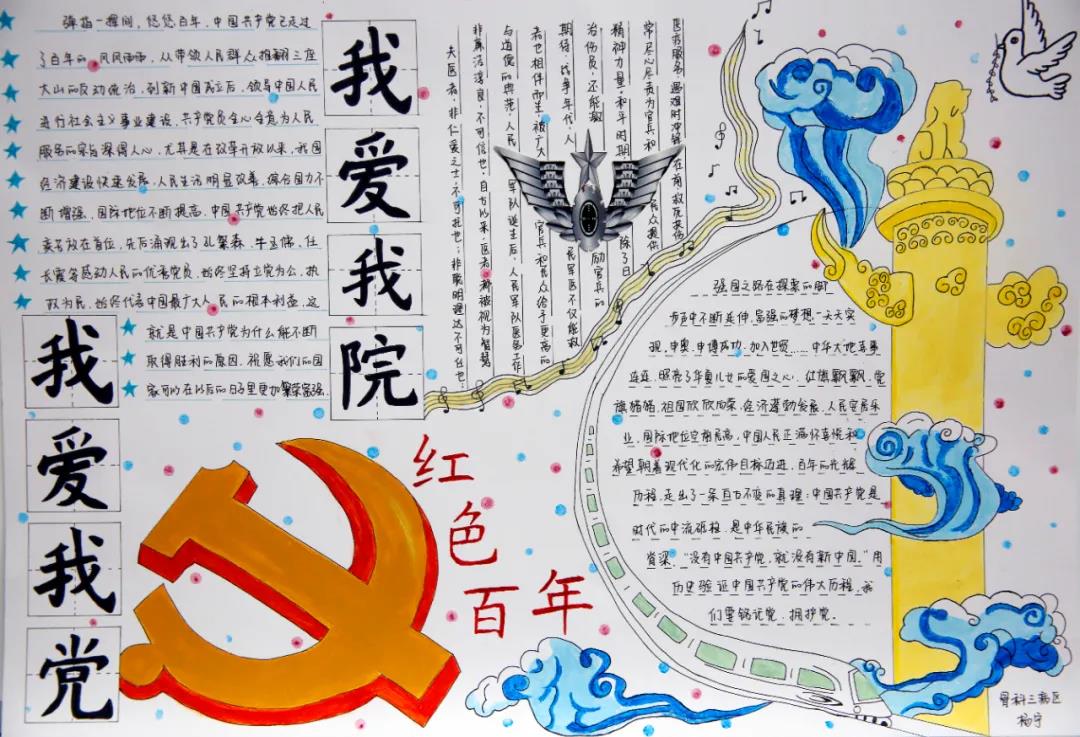 弹指一挥间，悠悠百年，中国共产党已走过
了百年的风风雨雨，从带领人民群众推翻三座
大山的反动统治，到新中国成立后，领导中国人民
进行社会主义事业建设，共产党员全心全意为人民
服务的宗旨深得人心，尤其是在改革开放以来，我国
经济建设快速发展，人民生活明显改善，综合国力不
断增强，国际地位不断提高，中国共产党始终把人民
放在首位，先后涌现出了孔繁森、牛玉儒、任
长霞等感动人民的优秀党员，始终坚持立党为公，执
政为民，始终代表中国最广大人民的根本利益，这
就是中国共产党为什么能不断
取得胜利的原因，祝愿我们的国
家可以在以后的日子里更加繁荣富强。
我爱我院
我爱我党
医务服务，遇难时冲锋在前，救死扶伤
常尽心尽责为官兵和
精神力量，和平时期
治伤员，还能激励官兵的
期待，战争年代，人民军医不仅能救
者也相伴而生，被广大官兵和民众给予更高的
与道德的典范，人民军队诞生后，人民军队医务工作
非廉洁淳良，不可信也，自古以来，医者都被视为智慧
夫医者，非仁爱之士，不可托也；非聪明理达不可任也；
红色百年
强国之路在探索的脚
步声中不断延伸，富强的梦想一天天实
现，申奥、申博成功，加入世贸……中华大地喜事
连连，照亮了华夏儿女的爱国之心，红旗飘飘，党
旗猎猎，祖国欣欣向荣，经济蓬勃发展，人民安居乐
业，国际地位空前提高，中国人民正满怀喜悦和
希望朝着现代化的宏伟目标迈进，百年的光辉
历程，走出了一条亘古不变的真理：中国共产党是
时代的中流砥柱，是中华民族的
脊梁。“没有中国共产党，就没有新中国。”用
历史验证中国共产党的伟大历程，我
们要铭记党，拥护党。
骨科三病区
杨宇